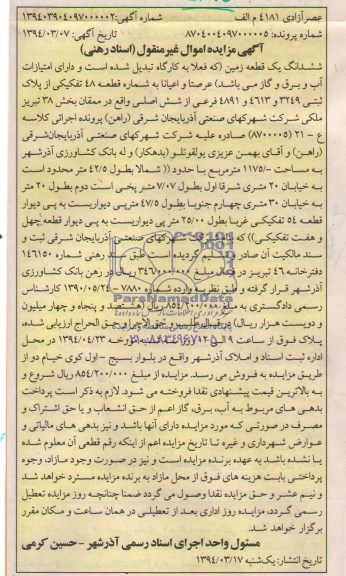 عصرآزادی ۴۱۸۱ م الف
شماره آگهی: ۱۳۹۴۰۳۹۰۴۰۹۷۰۰۰۰۰۲
شماره پرونده: ۸۷۰۴۰۰۴۰۹۷۰۰۰۰۰۵
تاریخ آگهی: ۱۳۹۴/۰۳/۰۷
آگهی مزایده اموال غیرمنقول (اسناد رهنی)
ششدانگ یک قطعه زمین (که فعلا به کارگاه تبدیل شده است و دارای امتیازات
آب و برق و گاز می باشد) عرصتا و اعیانا به شماره قطعه ۴۸ تفکیکی از پلاک
ثبتی ۳۲۴۹ و ۴۶۱۳ و ۴۸۹۱ فرعی از شش اصلی واقع در ممقان بخش ۳۸ تبریز
ملکی شرکت شهرکهای صنعتی آذربایجان شرقی (راهن) پرونده اجرائی کلاسه
ع - ۲۱ (۸۷۰۰۰۰۵) صادره علیه شرکت شهرکهای صنعتی آذربایجان شرقی
(راهن) و آقای بهمن عزیزی یولقونلو (بدهکار) و له بانک کشاورزی آذرشهر
به مساحت ۱۱۷۵/۰۰ مترمربع با حدود (( شمالا بطول ۴۲/۵ متر محدود است
به خیابان ۲۰ متری شرقا اول بطول ۷/۰۷ متر پخی است دوم بطول ۲۰ متر
به خیابان ۳۰ متری چهارم جنوبا بطول ۴۷/۵ متر پی دیواریست به پی دیوار
قطعه ۵۴ تفکیکی غربا بطول ۲۵/۰۰ متر پی دیواریست به پی دیوار قطعه چهل
و هفت تفکیکی)) که شهرکهای صنعتی آذربایجان شرقی ثبت و
سند مالکیت آن صادر و تسلیم گردیده است طبق سند رهنی شماره ۱۴۶۱۵۰
دفترخانه ۴۶ تبریز در قبال مبلغ ریال در رهن بانک کشاورزی
آذرشهر قرار گرفته و طبق نظریه وارده شماره ۷۸۸۰ - ۱۳۹۰/۰۵/۲۴ کارشناس
رسمی دادگستری به مبلغ ۸۵۴/۲۰۰/۰۰۰ ریال (هشتصد و پنجاه و چهار میلیون
و دویست هزار ریال) حق الحراج ارزیابی شده،
پلاک فوق از ساعت ۹ الی ۱۲ روز مورخه ۱۳۹۴/۰۴/۲۳ در محل
اداره ثبت اسناد و املاک آذرشهر واقع در بلوار بسیج - اول کوی خیام دو از
طریق مزایده به فروش می رسد. مزایده از مبلغ ۸۵۴/۲۰۰/۰۰۰ ریال شروع و
به بالاترین قیمت پیشنهادی نقدا فروخته می شود. لازم به ذکر است پرداخت
بدهی های مربوط به آب، برق، گاز اعم از حق انشعاب و یا حق اشتراک و
مصرف در صورتی که مورد مزایده دارای آنها باشد و نیز بدهی های مالیاتی و
عوارض شهرداری و غیره تا تاریخ مزایده اعم از اینکه رقم قطعی آن معلوم شده
یا نشده باشد به عهده برنده مزایده است و نیز در صورت وجود مازاد، وجوه
پرداختی بابت هزینه های فوق از محل مازاد به برنده مزایده مسترد خواهد شد
و نیم عشر و حق مزایده نقدا وصول می گردد ضمنا چنانچه روز مزایده تعطیل
رسمی گردد، مزایده روز اداری بعد از تعطیلی در همان ساعت و مکان مقرر
برگزار خواهد شد.
مسئول واحد اجرای اسناد رسمی آذرشهر - حسین کرمی
تاریخ انتشار: یک شنبه ۱۳۹۴/۰۳/۱۷
ParsNamadData